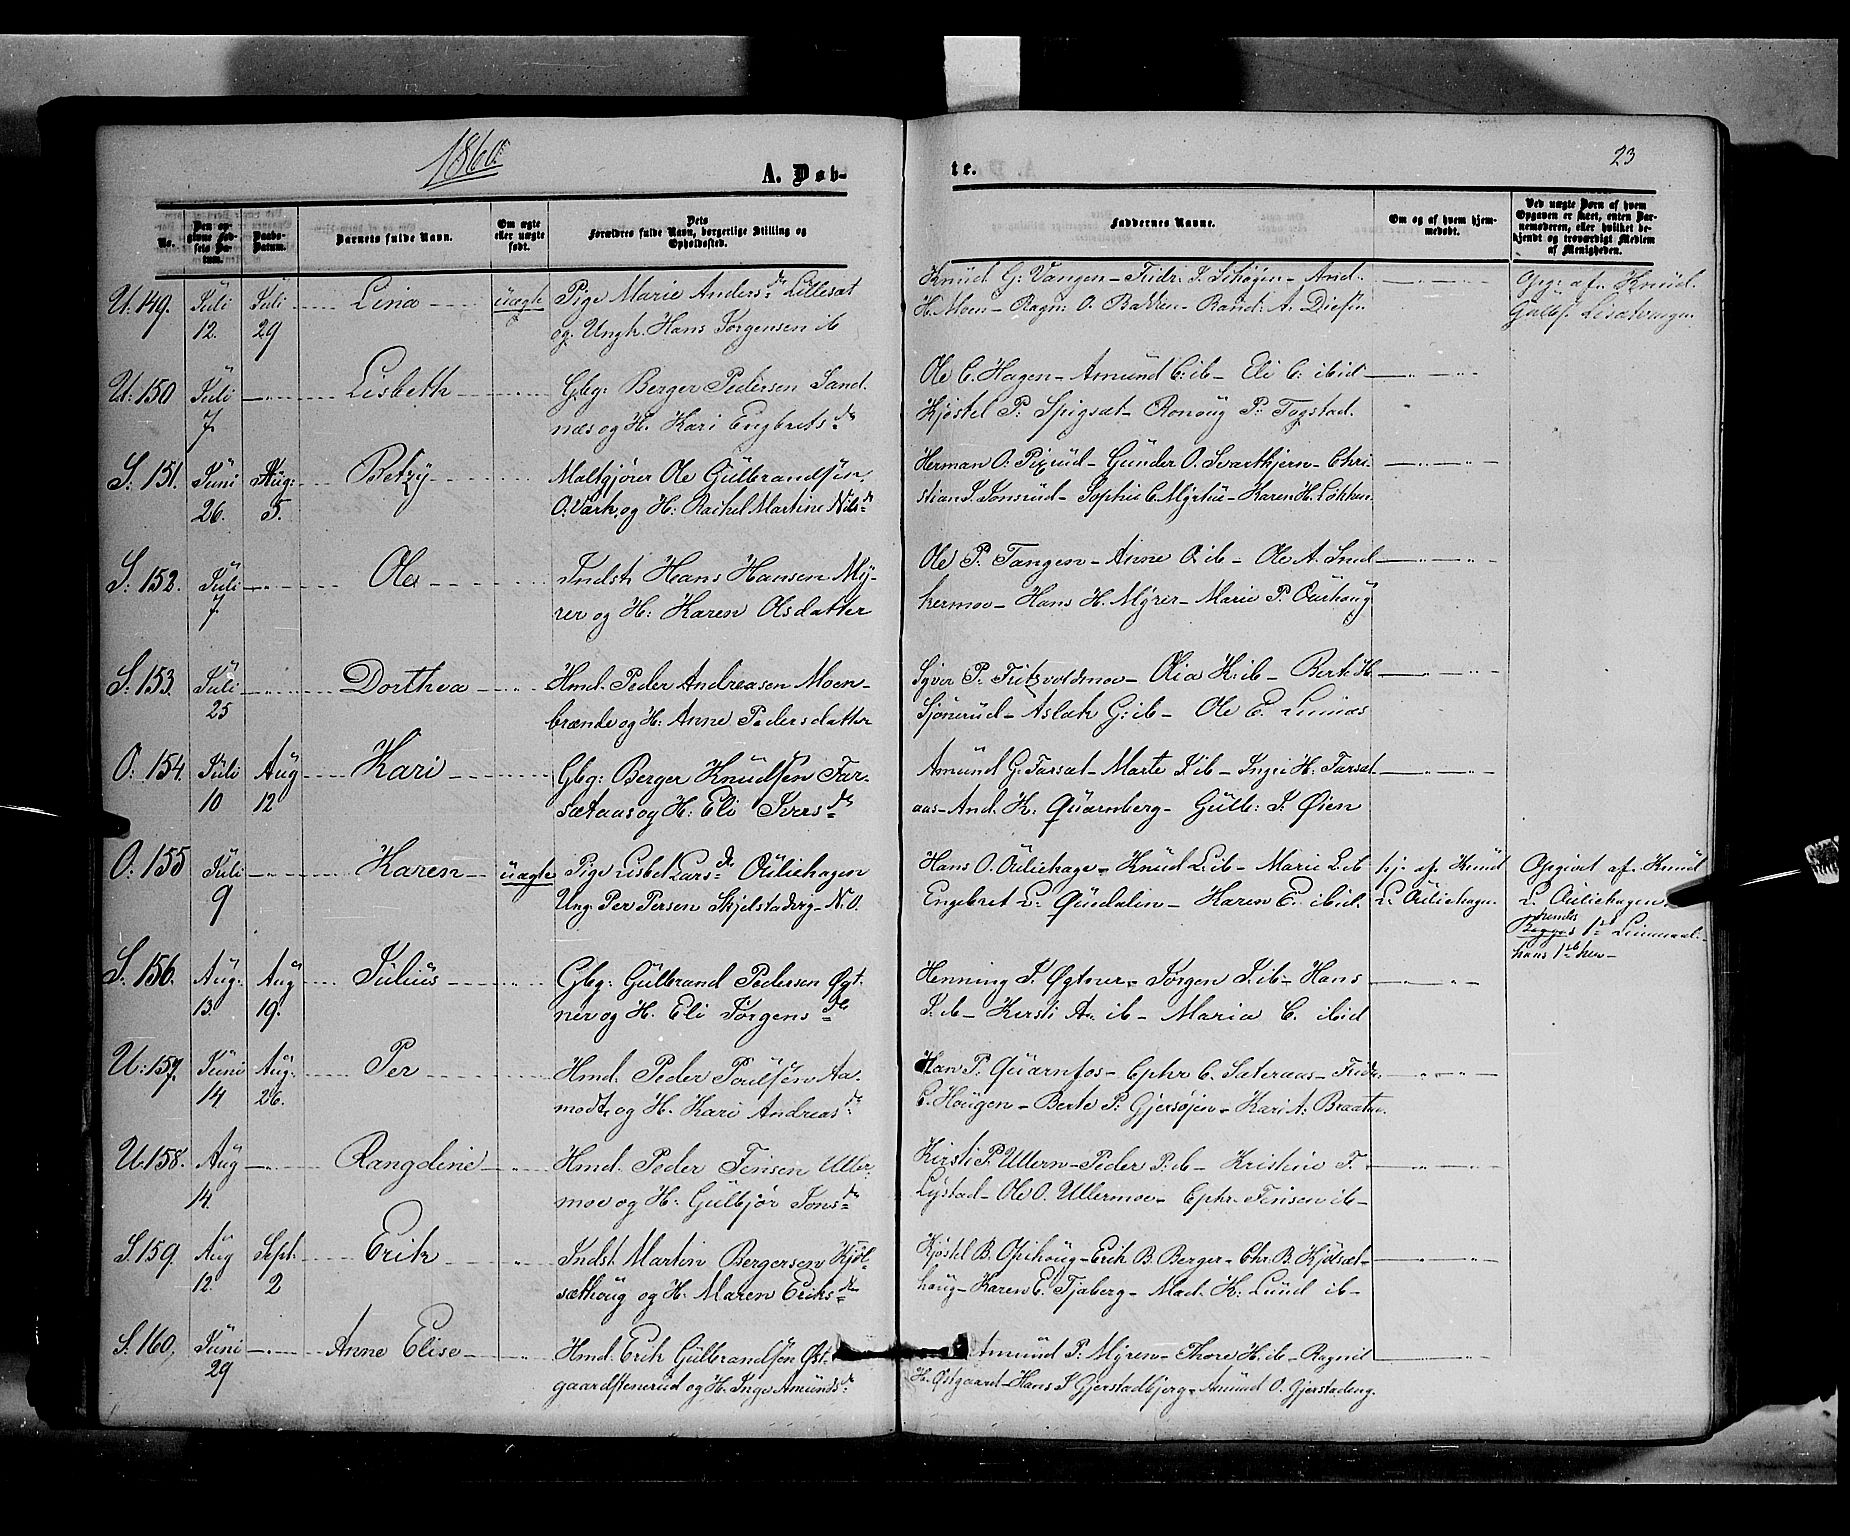 1860.
A. Døb-
te.
23
No.
Den op-
givne Fød-
sels Da-
tum.
Daabs-
Datum.
Barnets fulde Navn.
Om ægte
eller uægte
født.
Dets
Forældres fulde Navn, borgerlige Stilling og
Opholdssted.
Faddernes Navne.
Om og af hvem hjem-
medøbt.
Ved uægte Børn af hvem
Opgaven er skeet, enten Bar-
nemoderen, eller hvilket be-
kjendt og troværdigt Medlem
af Menigheden.
U. 149. Juli 12. Juli 29 Lina uægte Pige Marie Anders dr Lillesæt
og Ungk. Hans Jørgensen ib
Knud G. Vangen - Fridr. J. - And.
H. Moen - Ragn. O. Bakken - Rand. A. Diesen
Opg. af Knud
Gulbr.
U. 150 Juli 7. Lisbeth Gbg. Berger Pedersen Sand
næs og H. Kari Engbrets dr
Ole C. Hagen - Amund C. ib - Eli C. ibid
Kjøstel P. Spigsæt - Ronoug P. Togstad.
S. 151. Juni 26. Aug. 5. Betzy Maltgjører Ole Gulbrandsen
O. Værk, og H. Rachel Martine Nils dr
Herman O. Pixrud - Gunder O. Svartbjern - Chri
stian J. Jonsrud - Sophie C. Myrhu - Karen H. Løkken
S. 152. Juli 7. Ole Indst. Hans Hansen My-
rer og H. Karen Olsdatter
Ole P. Tangen - Anne O. ib - Ole A. Sned
kermoe - Hans H. Myrer - Marie P. Ourhoug
S. 153. Juli 25 Dorthea Hmd. Peder Andreasen Moen-
brænde og H. Anne Pedersdatter
Syver P. Fritzvoldmoe - Olia H. ib - Berth. H.
Sjonerud - Aslak G. ib - Ole E. Linnæs
O. 154. Juli 10 Aug 12 Kari Gbg. Berger Knudsen Far-
sætaas og H. Eli Ivers dr
Amund G. Farsæt - Marte K. ib - Ingri H. Farsæt
aas - And. K. Quarnberg - Gulb. J. Øien
O. 155 Juli 9 Karen uægte Pige Lisbet Lars dr Ouliehagen
Ung. Per Persen Skjelstaderg - N. O.
Hans O. Ouliehage - Knud L. ib - Marie L. ib
Engebret L. Gundalen - Karen E. ibid.
hj. af Knud
L. Ouliehagen.
Opgivet af Knud
L. Ouliehagen.
hendes
Begges 1ste Leiermaal.
hans 1ste hen-
S. 156. Aug. 13. Aug 19. Julius Gbg. Gulbrand Pedersen Øgt
ner og H. Eli Jørgens dr
Henning J. Øgtner - Jørgen J. ib - Hans
J. ib - Kersti A. ib - Maria C. ibid
U. 157. Juni 14 Aug. 26. Per Hmd. Peder Poulsen Aa-
modt, og H. Kari Andreas dr
Han P. Quarnfos - Ephr. C. Sæteraas - Fridr.
C. Hougen - Berte P. Gjersøjen - Kari A. Braaten.
U. 158. Aug 14. Rangdine Hmd. Peder Finsen Uller-
moe og H. Gulbjør Jons dr
Kirsti P. Ullern - Peder P. ib - Kristine F.
Lystad - Ole O. Ullermoe - Ephr. Finsen ib -
S. 159. Aug 12. Sept. 2 Erik Indst. Martin Bergersen Kjøl-
sæthoug og H. Maren Eriks dr
Kjøstel B. Opihoug - Erik B. Berger - Chr. B. Kjølsæt-
houg - Karen E. Tjaberg - Mad. K. Lund ib -
S. 160. Juni 29 Anne Elise Hmd. Erik Gulbrandsen Øst-
gaardstenerud og H. Inge Amunds dr
Amund P. Myren - Thore H. ib - Ragnil
H. Østgaard - Hans J. Gjerstadbjerg - Amund O. Gjerstadeng.